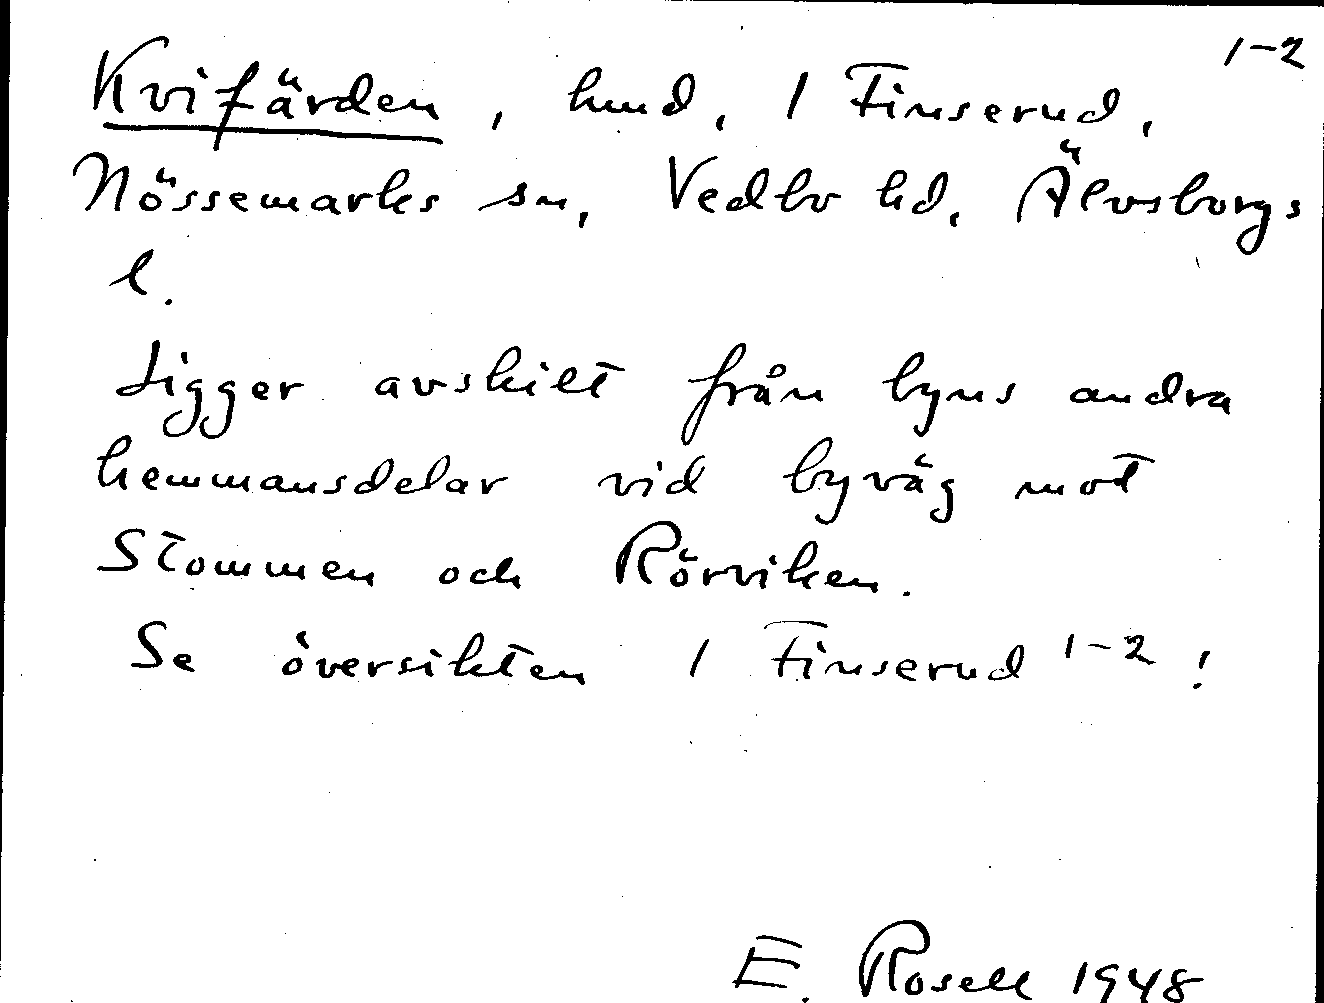 1-2
Kvifärden, hmd, 1 Finserud,
Nössemarks sn, Vedbo hd, Älvsborgs
l.
Ligger avskilt från byns andra
hemmansdelar vid byväg mot
Stommen och Rörviken.
Se översikten 1 Finserud 1-2!
E. Rosell 1948